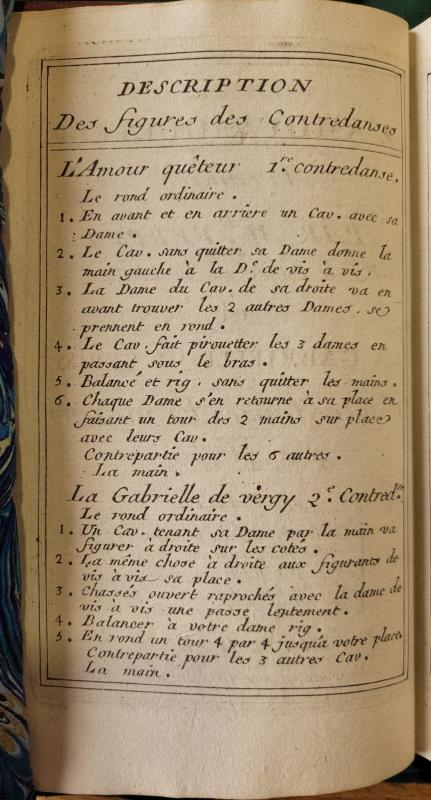 DESCRIPTION
Des figures des Contredanses
L'Amour quêteur 1.re contredanse.
Le rond ordinaire.
1. En avant et en arriere un Cav. avec sa
Dame.
2. Le Cav. sans quitter sa Dame donne la
main gauche à la D.e de vis à vis.
3. La Dame du Cav. de sa droite va en
avant trouver les 2 autres Dames, se
prennent en rond.
4. Le Cav. fait pirouetter les 3 dames en
passant sous le bras.
5. Balance et rig. sans quitter les mains.
6. Chaque Dame s'en retourne à sa place en
faisant un tour des 2 mains sur place
avec leurs Cav.
Contrepartie pour les 6 autres.
La main.
La Gabrielle de vergy 2.e Contred.se
Le rond ordinaire.
1. Un Cav. tenant sa Dame par la main va
figurer à droite sur les cotés.
2. La même chose à droite aux figurants de
vis à vis sa place.
3. Chassés ouvert raprochés avec la dame de
vis à vis une passe lentement.
4. Balancer à votre dame rig.
5. En rond un tour 4 par 4 jusqu'à votre place.
Contrepartie pour les 3 autres Cav.
La main.